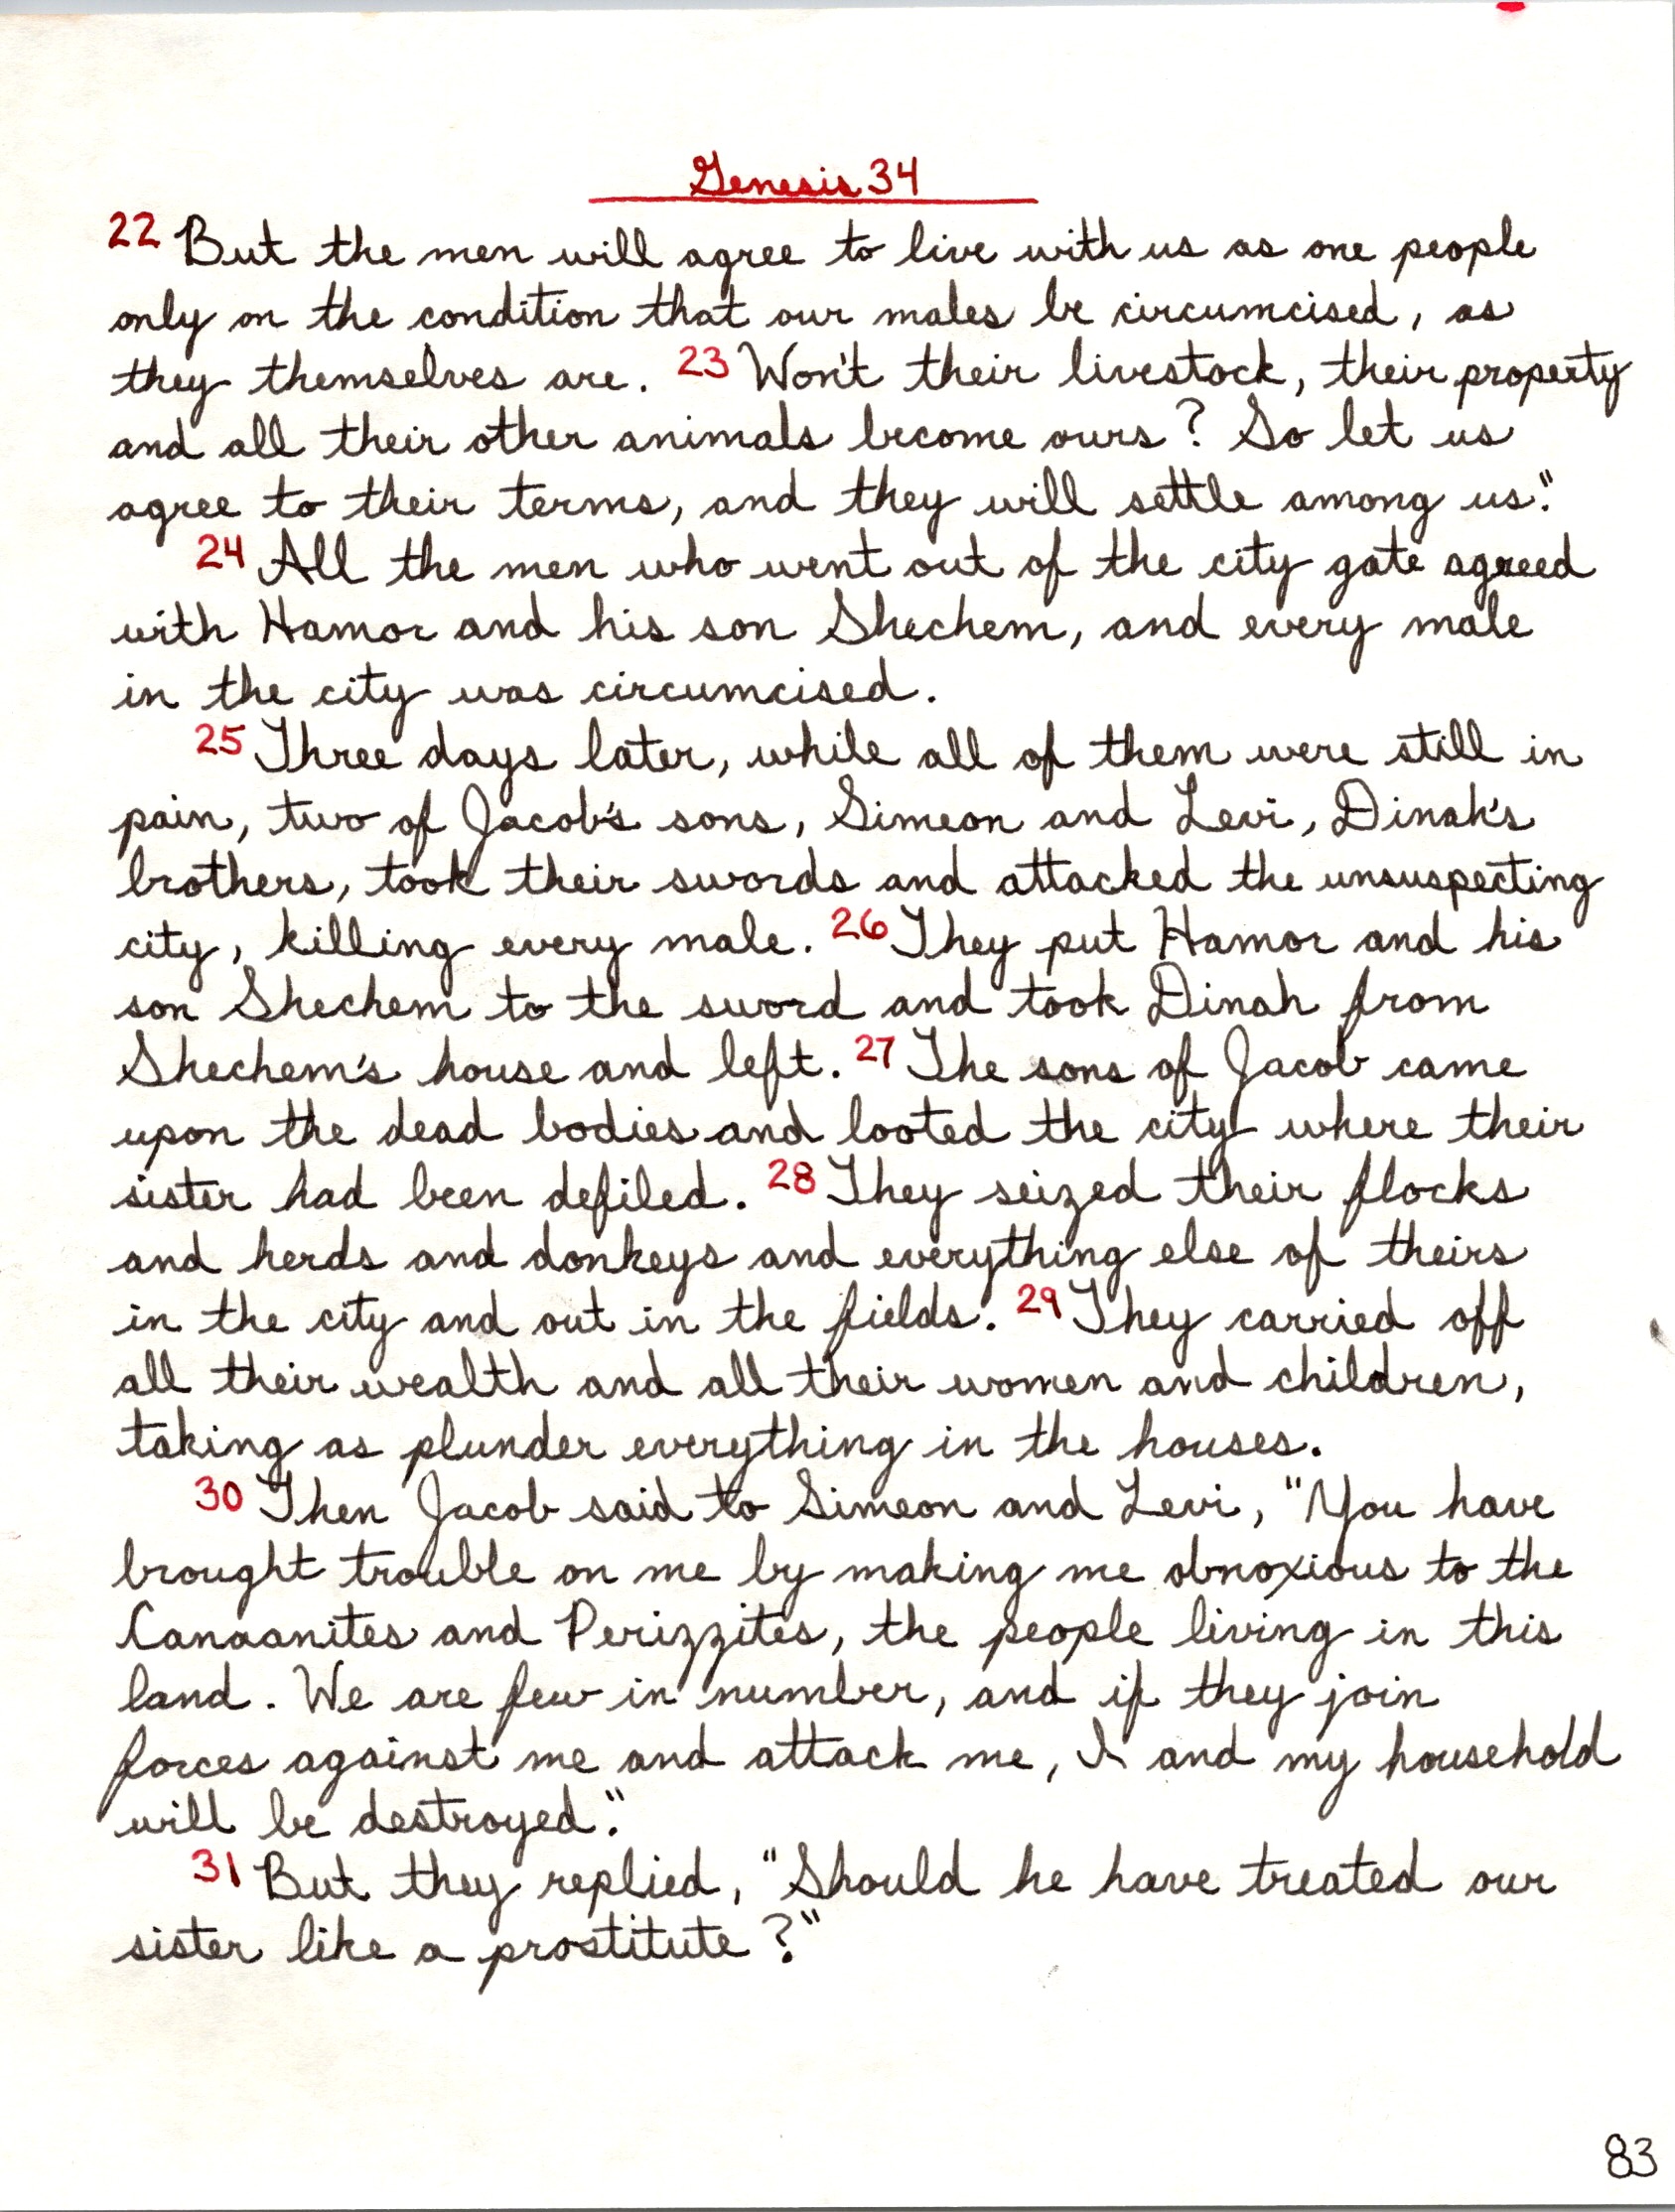 Genesis 34
22 But the men will agree to live with us as one people
only on the condition that our males be circumcised, as
they themselves are. 23 Won't their livestock, their property
and all their other animals become ours? So let us
agree to their terms, and they will settle among us."
24 All the men who went out of the city gate agreed
with Hamor and his son Shechem, and every male
in the city was circumcised.
25 Three days later, while all of them were still in
pain, two of Jacob's sons, Simeon and Levi, Dinah's
brothers, took their swords and attacked the unsuspecting
city, killing every male. 26 They put Hamor and his
son Shechem to the sword and took Dinah from
Shechem's house and left. 27 The sons of Jacob came
upon the dead bodies and looted the city where their
sister had been defiled. 28 They seized their flocks
and herds and donkeys and everything else of theirs
in the city and out in the fields. 29 They carried off
all their wealth and all their women and children,
taking as plunder everything in the houses.
30 Then Jacob said to Simeon and Levi, "You have
brought trouble on me by making me obnoxious to the
Canaanites and Perizzites, the people living in this
land. We are few in number, and if they join
forces against me and attack me, I and my household
will be destroyed."
31 But they replied, "Should he have treated our
sister like a prostitute?"
83